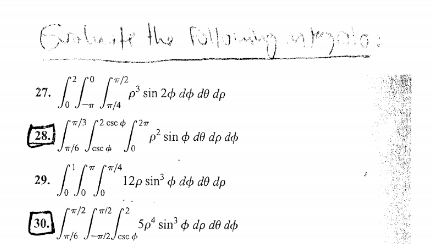 Evaluate the following integrals:
27. ∫₀² ∫₋π⁰ ∫π/4^π/2 ρ³ sin 2ϕ dϕ dθ dρ
28. ∫π/6^π/3 ∫csc ϕ^2 csc ϕ ∫₀^2π ρ² sin ϕ dθ dρ dϕ
29. ∫₀¹ ∫₀^π ∫₀^π/4 12ρ sin³ ϕ dϕ dθ dρ
30. ∫π/6^π/2 ∫₋π/2^π/2 ∫csc ϕ^2 5ρ⁴ sin³ ϕ dρ dθ dϕ